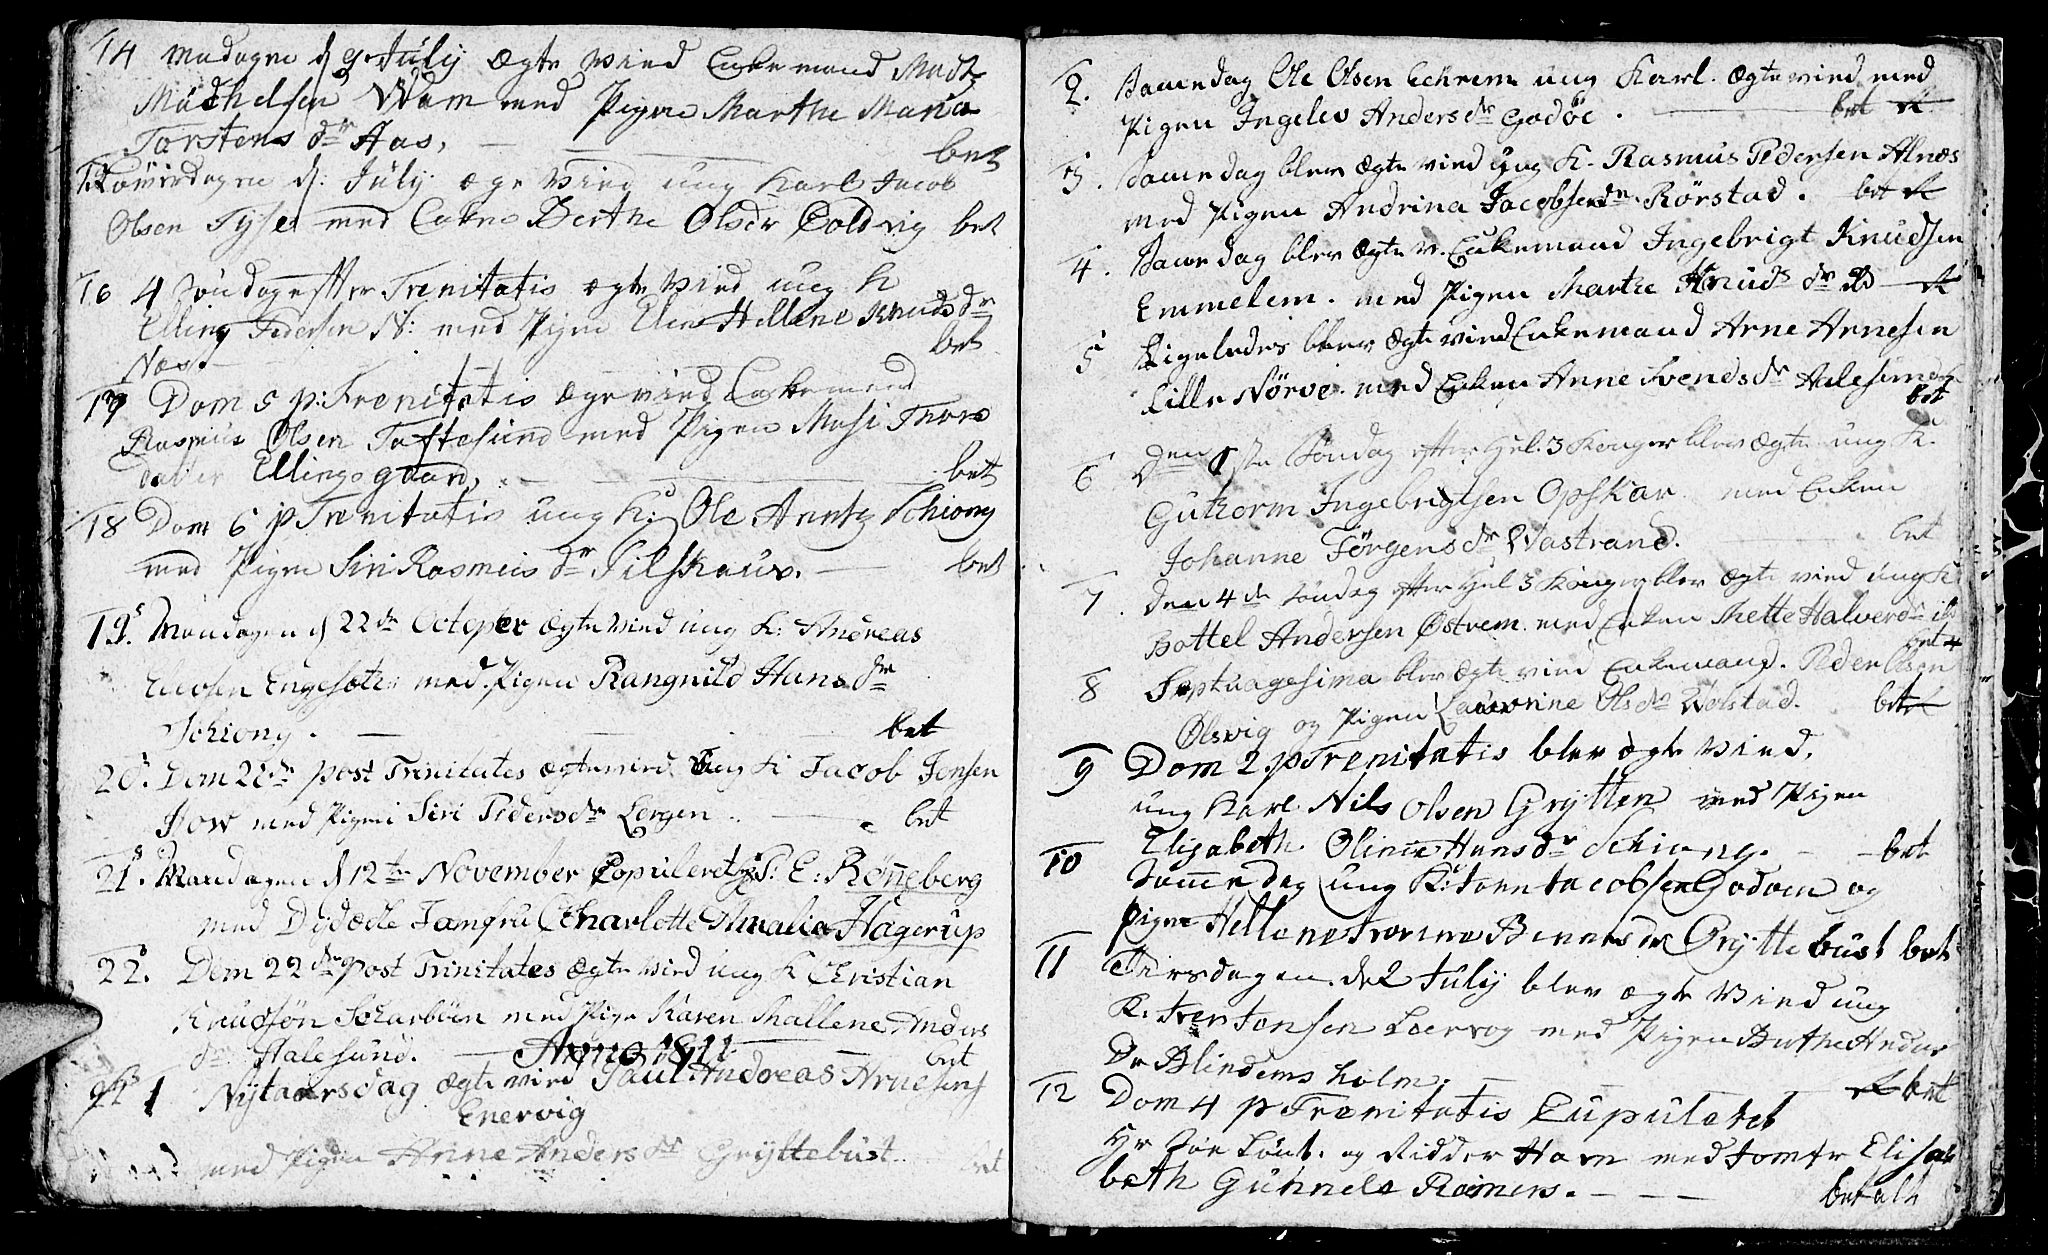 14 Mandagen d 9 July Ægte Vied Enkemand Mads
Michelsen Wam med Pigen Marthe Maria
Torstens dr Aas, bet
Loverdagen d: July ægte Vied ung Karl Jacob
Olsen Tysse med Enke Berthe Olsdr Boldvig bet
16 4 Søndag efter Trenitatis ægte Vied ung K
Elling Pedersen N: med Pigen Elen Hellene Knuds dr
Næss bet
Dom 5 p: Trenitatis ægte vied Enkemand
Rasmus Olsen Toftesund med Pigen Mari Thore
datter Ellingsgaard, bet
18 Dom 6 p Trenitatis ung K: Ole Arntz Schiong
med Pigen Siri Rasmus dr Tilskaus. bet
19. Mandagen d 22de Octoper ægte vied ung K: Andreas
Ellevsen Engesætr med Pigen Rangnild Hans dr
Schiong. bet
20. Dom 21de post Trinitates ægte vied Ung K Jacob Jensen
How med Pigen Siri Peders dr Lergen bet
21. Mandagen d 12te November Copuleret Hr: E: Rønneberg
med Dydædle Jomfru Charlotte Amalia Hagerup
22. Dom 22de post Trinitates ægte vied ung K Christian
Knudsøn Scharbøen med Pige Karen Mallene Anders
dr Halesund. bet
Anno 1811
1 Nytaarsdag ægte vied Paul Andreas Arnesen
Enervig
med Pigen Anne Anders dr Gryttebust bet
2. Samedag Ole Olsen Echrem ung Karl. ægte vied med
Pigen Ingelev Anders dr Godøe. bet
3. Samedag blev ægte vied ung K. Rasmus Pedersen Alnæs
med Pigen Andrina Jacobsendr Rørstad. bet
4. Samedag blev ægte v. Enkemand Ingebrigt Knudsen
Emmelem. med Pigen Marthe Knuds dr
5 Ligeledes blev ægte vied Enkemand Arne Arnesen
Lille Nörve. med Enken Anne Svends dr Halesund
bet
6 Den 1ste Søndag efter Hel. 3 Konger blev ægte ung K.
Guthorm Ingebrigtsen Opskar med Enken
Johanne Jørgens dr Wastrand. bet
7. Den 4de Søndag efter Hel 3 Konger blev ægte vied ung K
Bottel Andersen Østrem med Enken Mette Halvor dr
bet
8 Septuagesima blev ægte vied Enkemand. Peder Olsen
Olsvig og Pigen Laverine Ols dr Wolstad. bet
9 Dom 2 p Trenitatis blev ægte Vied,
ung Karl Nils Olsen Grytten med Pigen
Elizabeth Oline Hans dr Schiong. bet
10 Samedag ung K: Jonn Jacobsen Godøen og
Pigen Hellene Severine Bennes dr Grytte bust bet
11 Tirsdagen de 2 July blev ægte Vied ung
K. Iver Jonsen Loervog med Pigen Berthe Anders
Dr Blindems holm. bet
12 Dom 4 p Trenitatis Cupuleret
Hr Søe Löut. og Ridder Horn med Jomfr Elisa
beth Guhnele Romers. betalt